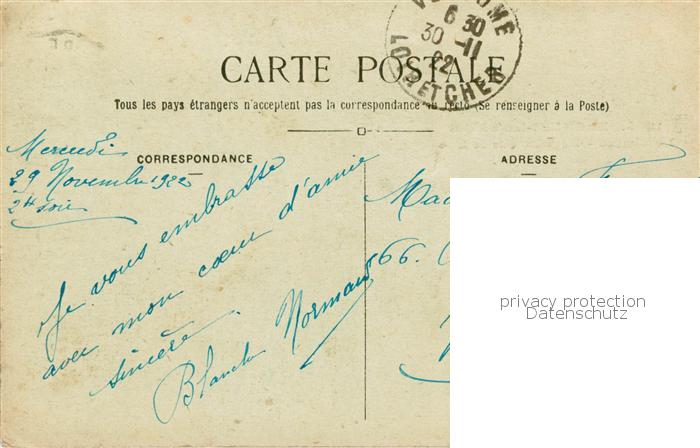 6 30
30 -11
22
LOIR ET CHER
CARTE POSTALE
Tous les pays étrangers n'acceptent pas la correspondance au recto (Se renseigner à la Poste)
CORRESPONDANCE
Mercredi
29 Novembre 1922
24 soir
Je vous embrasse
avec mon cœur d'amie
sincère.
Blanche Normand
ADRESSE
66.
privacy protection
Datenschutz